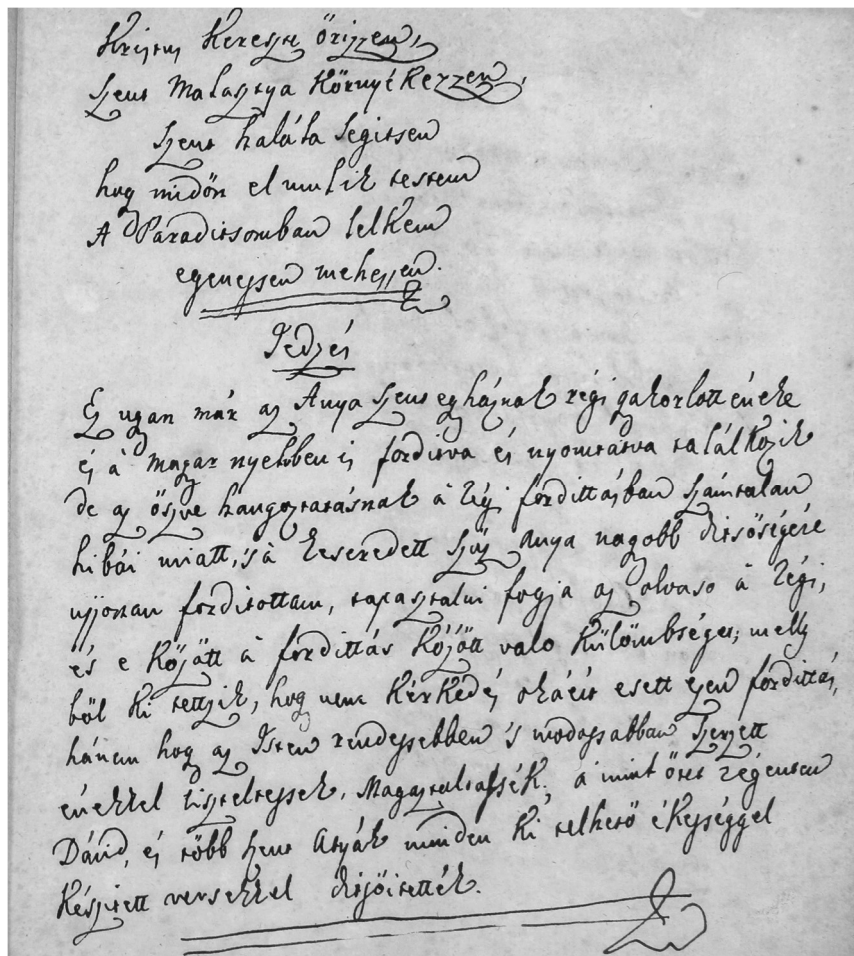 Kristus Keresztje őrizzen,
Szent Malasztya Környékezzen,
Szent halála segitsen
hogy midőn el mulik testem
A Paraditsomban lelkem
egenessen mehessen.
Jedzés
Ez ugyan már az Anya Szent egyháznak régi gyakorlott éneke
és à magyar nyelvben is forditva és nyomtatva találkozik
de az öszve hangoztatásnak à régi fordittásban számtalan
hibái miatt, 's à keseredett szűz anya nagyobb ditsőségére
ujjonan forditottam, tapasztalni fogja az olvaso à régi,
és e között à fordittás között valo külömbséget; melly
ből ki tettzik, hogy nem kérkedés okáért esett ezen fordittás,
hánem hogy az Isten rendessebben 's modossabban szerzett
énekkel tiszteltessék, Magasztaltassék; à mint őtet régenten
Dávid, és több szent Atyák minden ki telhető ékességgel
készitett versekkel ditsőitették.